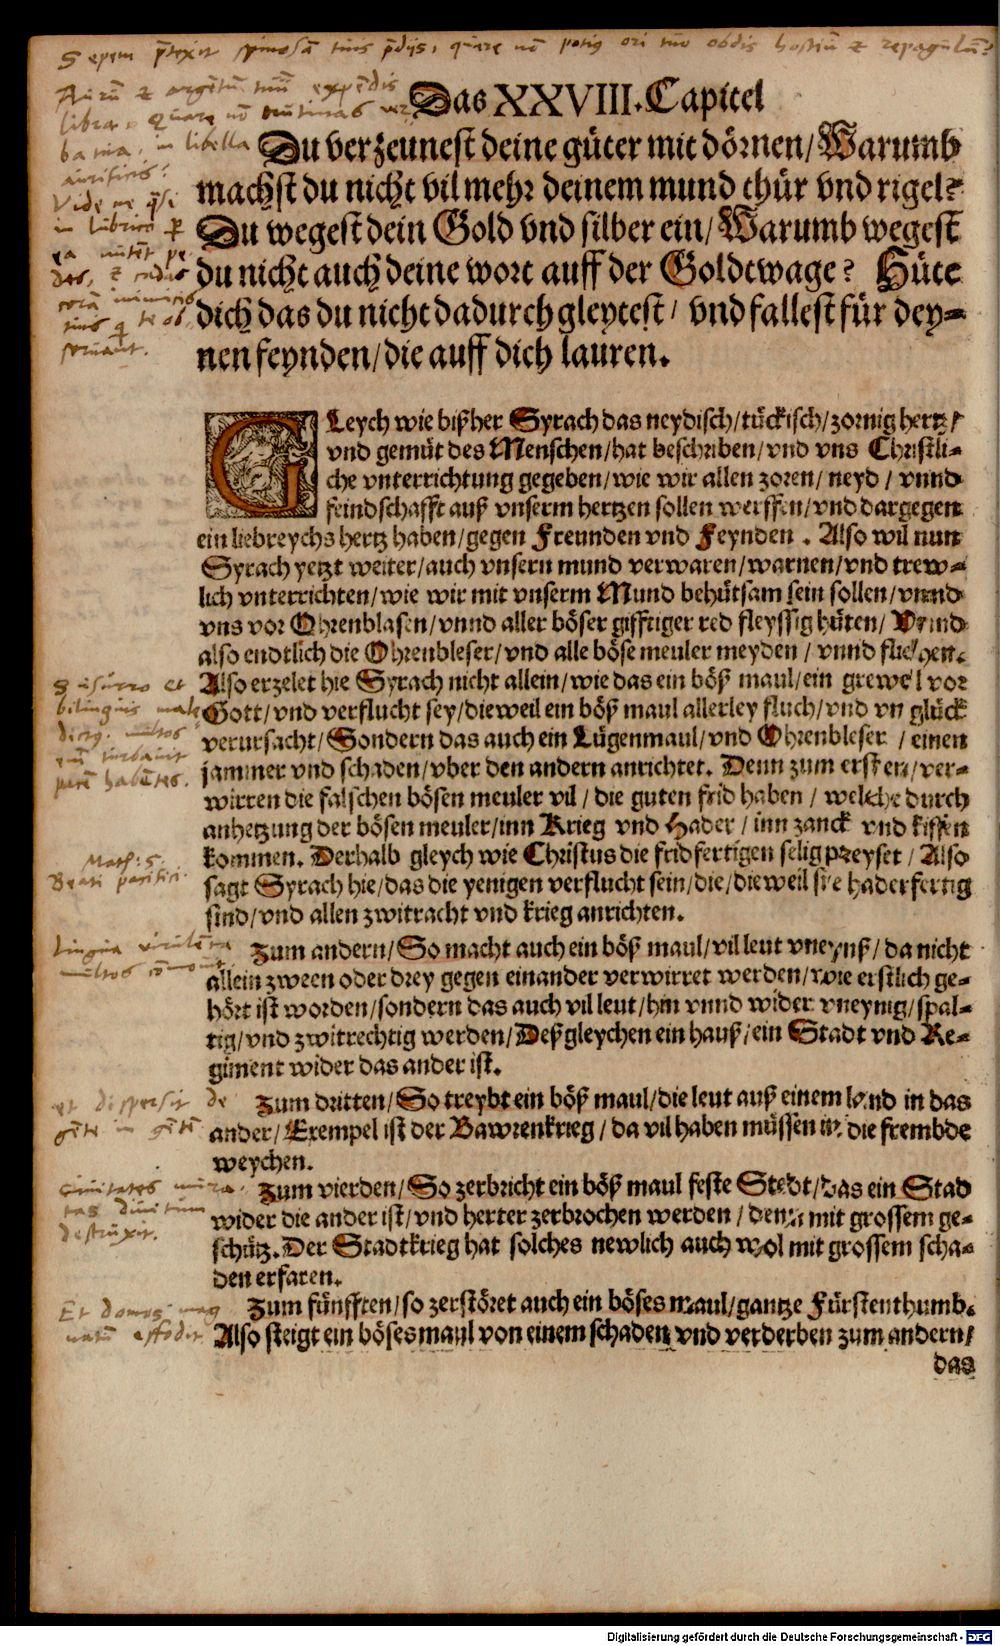 Sepem p̄texit spinosā tuis p̄dijs, quare nō potiꝰ ori tuo obdis hostiū et repagulū?
Aurū et argētū tuū expēdis
libra, quare nō
in libella
Das XXVIII. Capitel
Du verzeunest deine güter mit dörnen/ Warumb
machst du nicht vil mehr deinem mund thür vnd rigel?
Du wegest dein Gold vnd silber ein/ Warumb wegest
du nicht auch deine wort auff der Goldtwage? Hüte
dich das du nicht dadurch gleytest/ vnd fallest für dey=
nen feynden/ die auff dich lauren.
Vide ne
in lubrico
tuis
GLeych wie bißher Syrach das neydisch/ tückisch/ zornig hertz/
vnd gemüt des Menschen/ hat beschriben/ vnd vns Christli=
che vnterrichtung gegeben/ wie wir allen zoren/ neyd/ vnnd
feindschafft auß vnserm hertzen sollen werffen/ vnd dargegen
ein liebreychs hertz haben/ gegen Freunden vnd Feynden. Also wil nun
Syrach yetzt weiter/ auch vnsern mund verwaren/ warnen/ vnd trew=
lich vnterrichten/ wie wir mit vnserm Mund behütsam sein sollen/ vnnd
vns vor Ohrenblasen/ vnnd aller böser gifftiger red fleyssig hüten/ Vnnd
also endtlich die Ohrenbleser/ vnd alle böse meuler meyden/ vnnd fliehen.
Also erzelet hie Syrach nicht allein/ wie das ein böß maul/ ein grewel vor
Gott/ vnd verflucht sey/ dieweil ein böß maul allerley fluch/ vnd vnglück
verursacht/ Sondern das auch ein Lügenmaul/ vnd Ohrenbleser/ einen
jammer vnd schaden/ vber den andern anrichtet. Denn zum ersten/ ver=
wirren die falschen bösen meuler vil/ die guten frid haben/ welche durch
anhetzung der bösen meuler/ inn Krieg vnd Hader/ inn zanck vnd kiffen
kommen. Derhalb gleych wie Christus die fridfertigen selig preyset/ Also
sagt Syrach hie/ das die yenigen verflucht sein/ die/ dieweil sie haderfertig
sind/ vnd allen zwitracht vnd krieg anrichten.
Susurro et
bilinguis male
dictꝰ. multos
eni turbavit
pacē habētes.
Math: 5.
Beati pacifici.
Zum andern/ So macht auch ein böß maul/ vil leut vneynß/ da nicht
allein zween oder drey gegen einander verwirret werden/ wie erstlich ge=
hört ist worden/ sondern das auch vil leut/ hin vnnd wider vneynig/ spal=
tig/ vnd zwitrechtig werden/ Deßgleychen ein hauß/ ein Stadt vnd Re=
giment wider das ander ist.
Lingua
multos cōmovit
Zum dritten/ So treybt ein böß maul/ die leut auß einem land in das
ander/ Exempel ist der Bawrenkrieg/ da vil haben müssen in die frembde
weychen.
et dispersit de
gēte in gētē
Zum vierden/ So zerbricht ein böß maul feste Stedt/ das ein Stad
wider die ander ist/ vnd herter zerbrochen werden/ denn mit grossem ge=
schütz. Der Stadtkrieg hat solches newlich auch wol mit grossem scha=
den erfaren.
Civitates mura
tas divitum
destruxit.
Zum fünfften/ so zerstöret auch ein böses maul/ gantze Fürstenthumb.
Also steigt ein böses maul von einem schaden vnd verderben zum andern/
das
Et domos mag
natū effodit
Digitalisierung gefördert durch die Deutsche Forschungsgemeinschaft - DFG